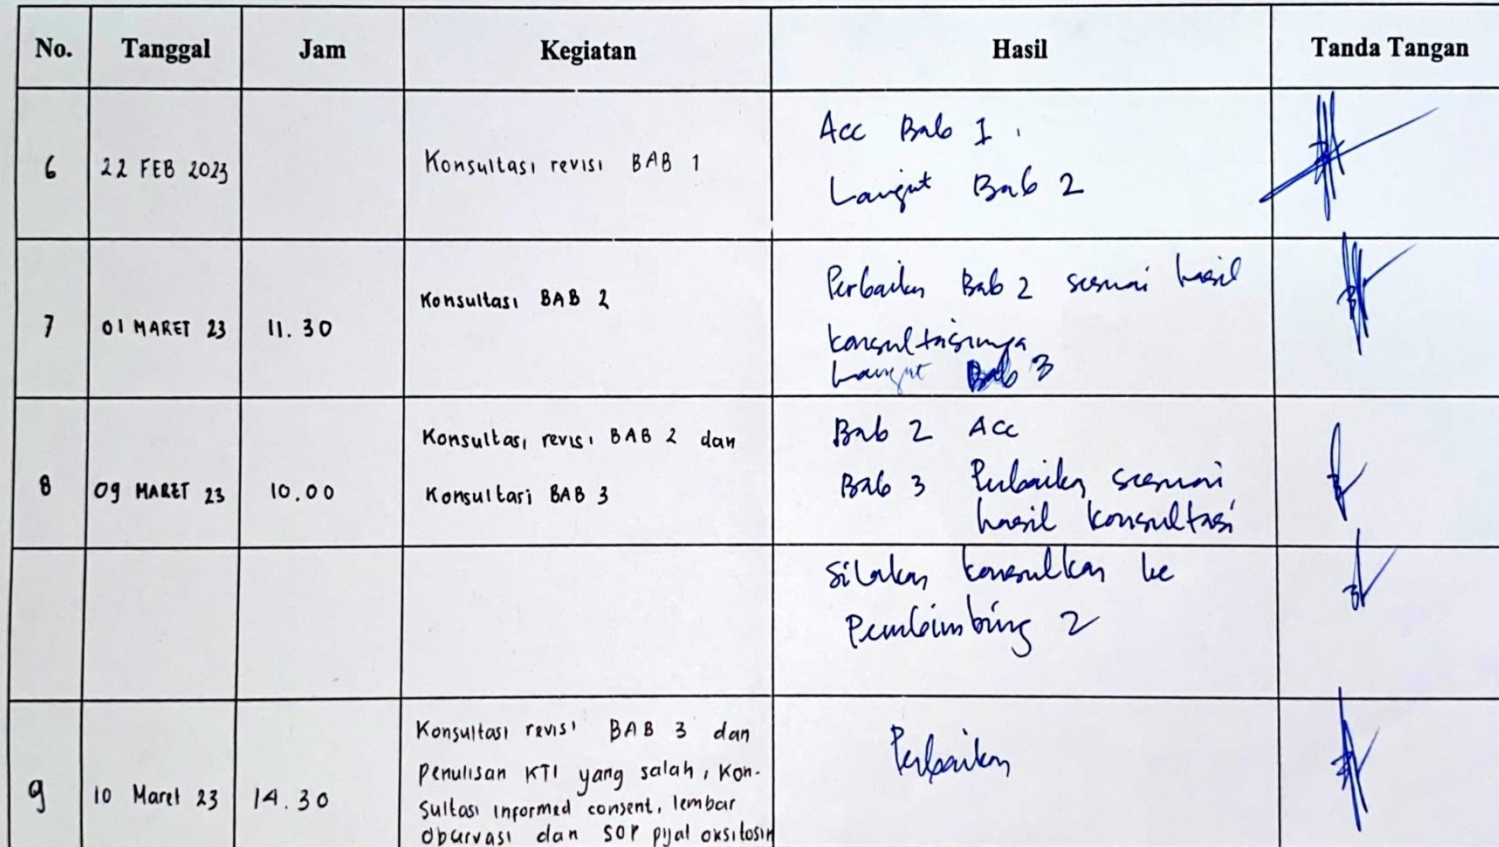 No. Tanggal Jam Kegiatan Hasil Tanda Tangan
6 22 FEB 2023 Konsultasi revisi BAB 1
Acc Bab I.
Lanjut Bab 2
7 01 MARET 23 11.30 Konsultasi BAB 2
Perbaikan Bab 2 sesuai hasil
konsultasinya
Lanjut Bab 3
8 09 MARET 23 10.00
Konsultasi revisi BAB 2 dan
Konsultasi BAB 3
Bab 2 Acc
Bab 3 Perbaikan sesuai
hasil konsultasi
Silakan konsulkan ke
Pembimbing 2
9 10 Maret 23 14.30
Konsultasi revisi BAB 3 dan
Penulisan KTI yang salah, Kon-
sultasi informed consent, lembar
observasi dan SOP pijat oksitosin
Perbaikan